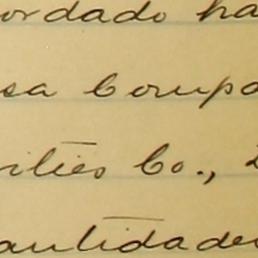 ordado ha
sa Compa
ities Co., 
antidades